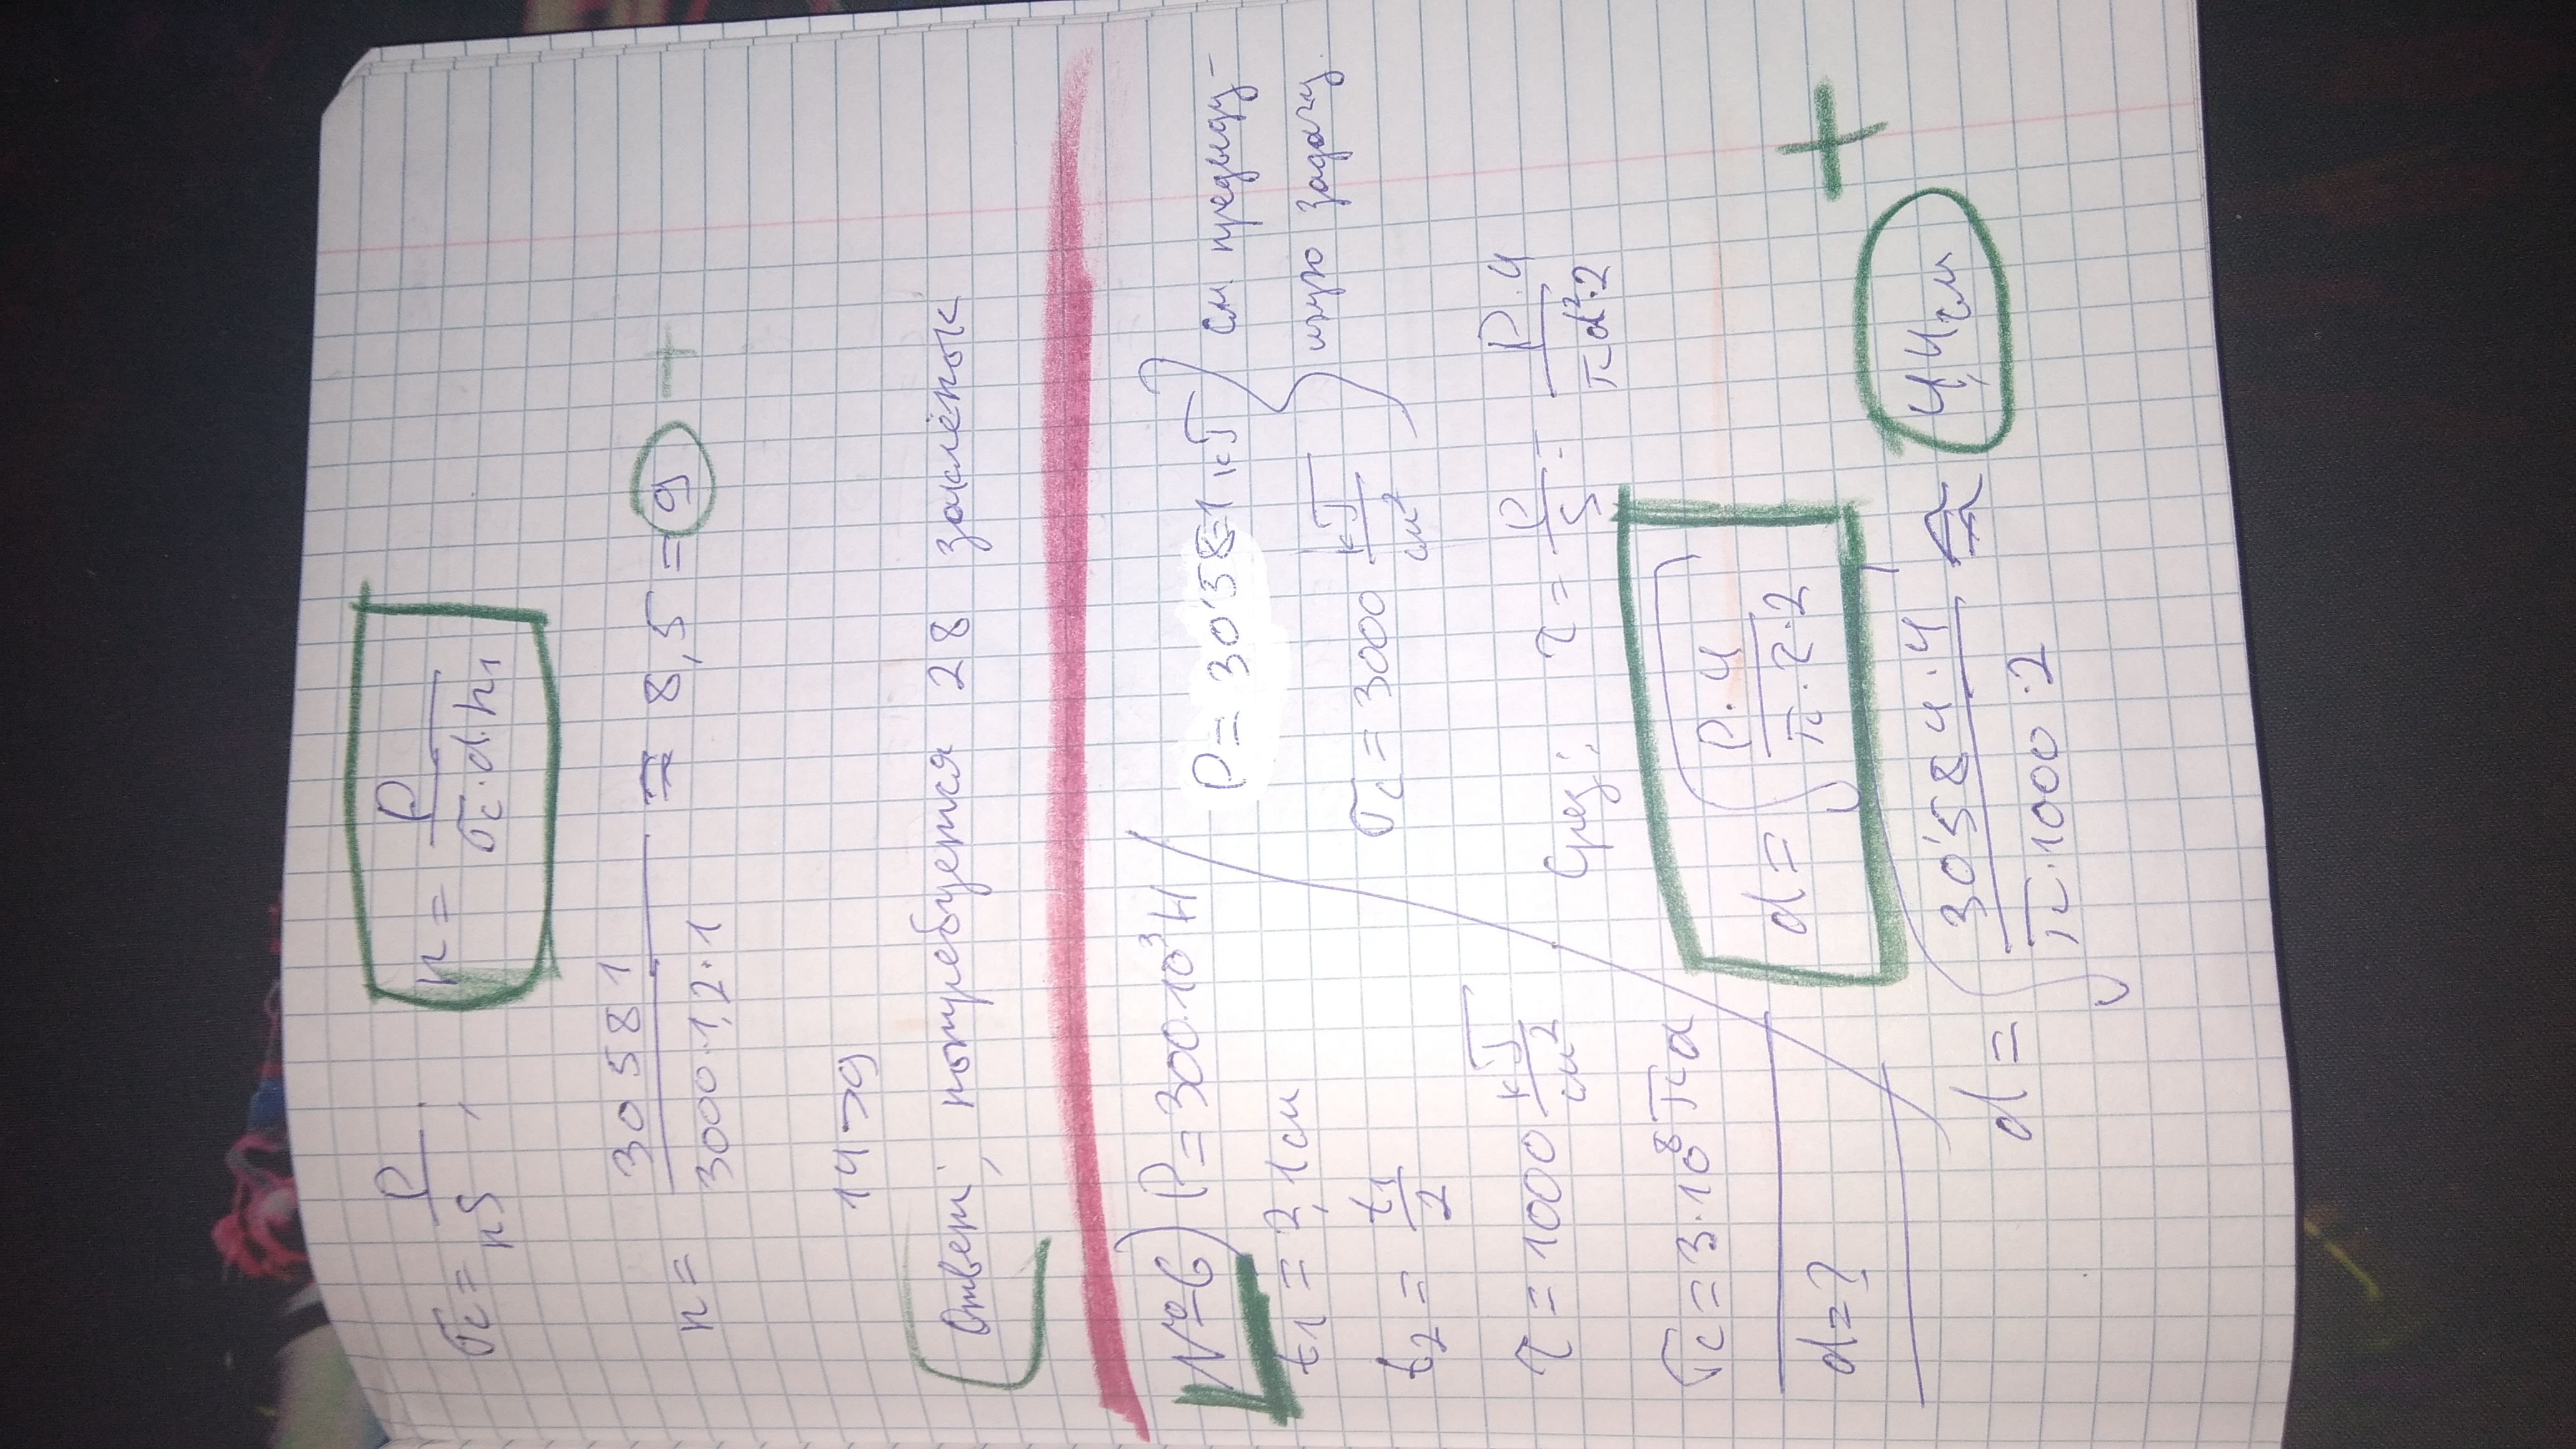 σc = P / nS ; n = P / σc·d·h1
n = 30581 / 3000·1,2·1 ≈ 8,5 = 9 +
14>9
Ответ; потребуется 28 заклёпок
№6) P = 300·10³ Н
t1 = 2,1 см
t2 = t1 / 2
τ = 1000 кГ / см²
σc = 3·10⁸ Па
d = ?
P = 30'581 кГ } см. предыду-
σc = 3000 кГ / см² } щую задачу.
Срез: τ = P / S = P·4 / πd²·2
d = √(P·4 / π·τ·2)
d = √(30'584·4 / π·1000·2) ≈ 4,4 см +